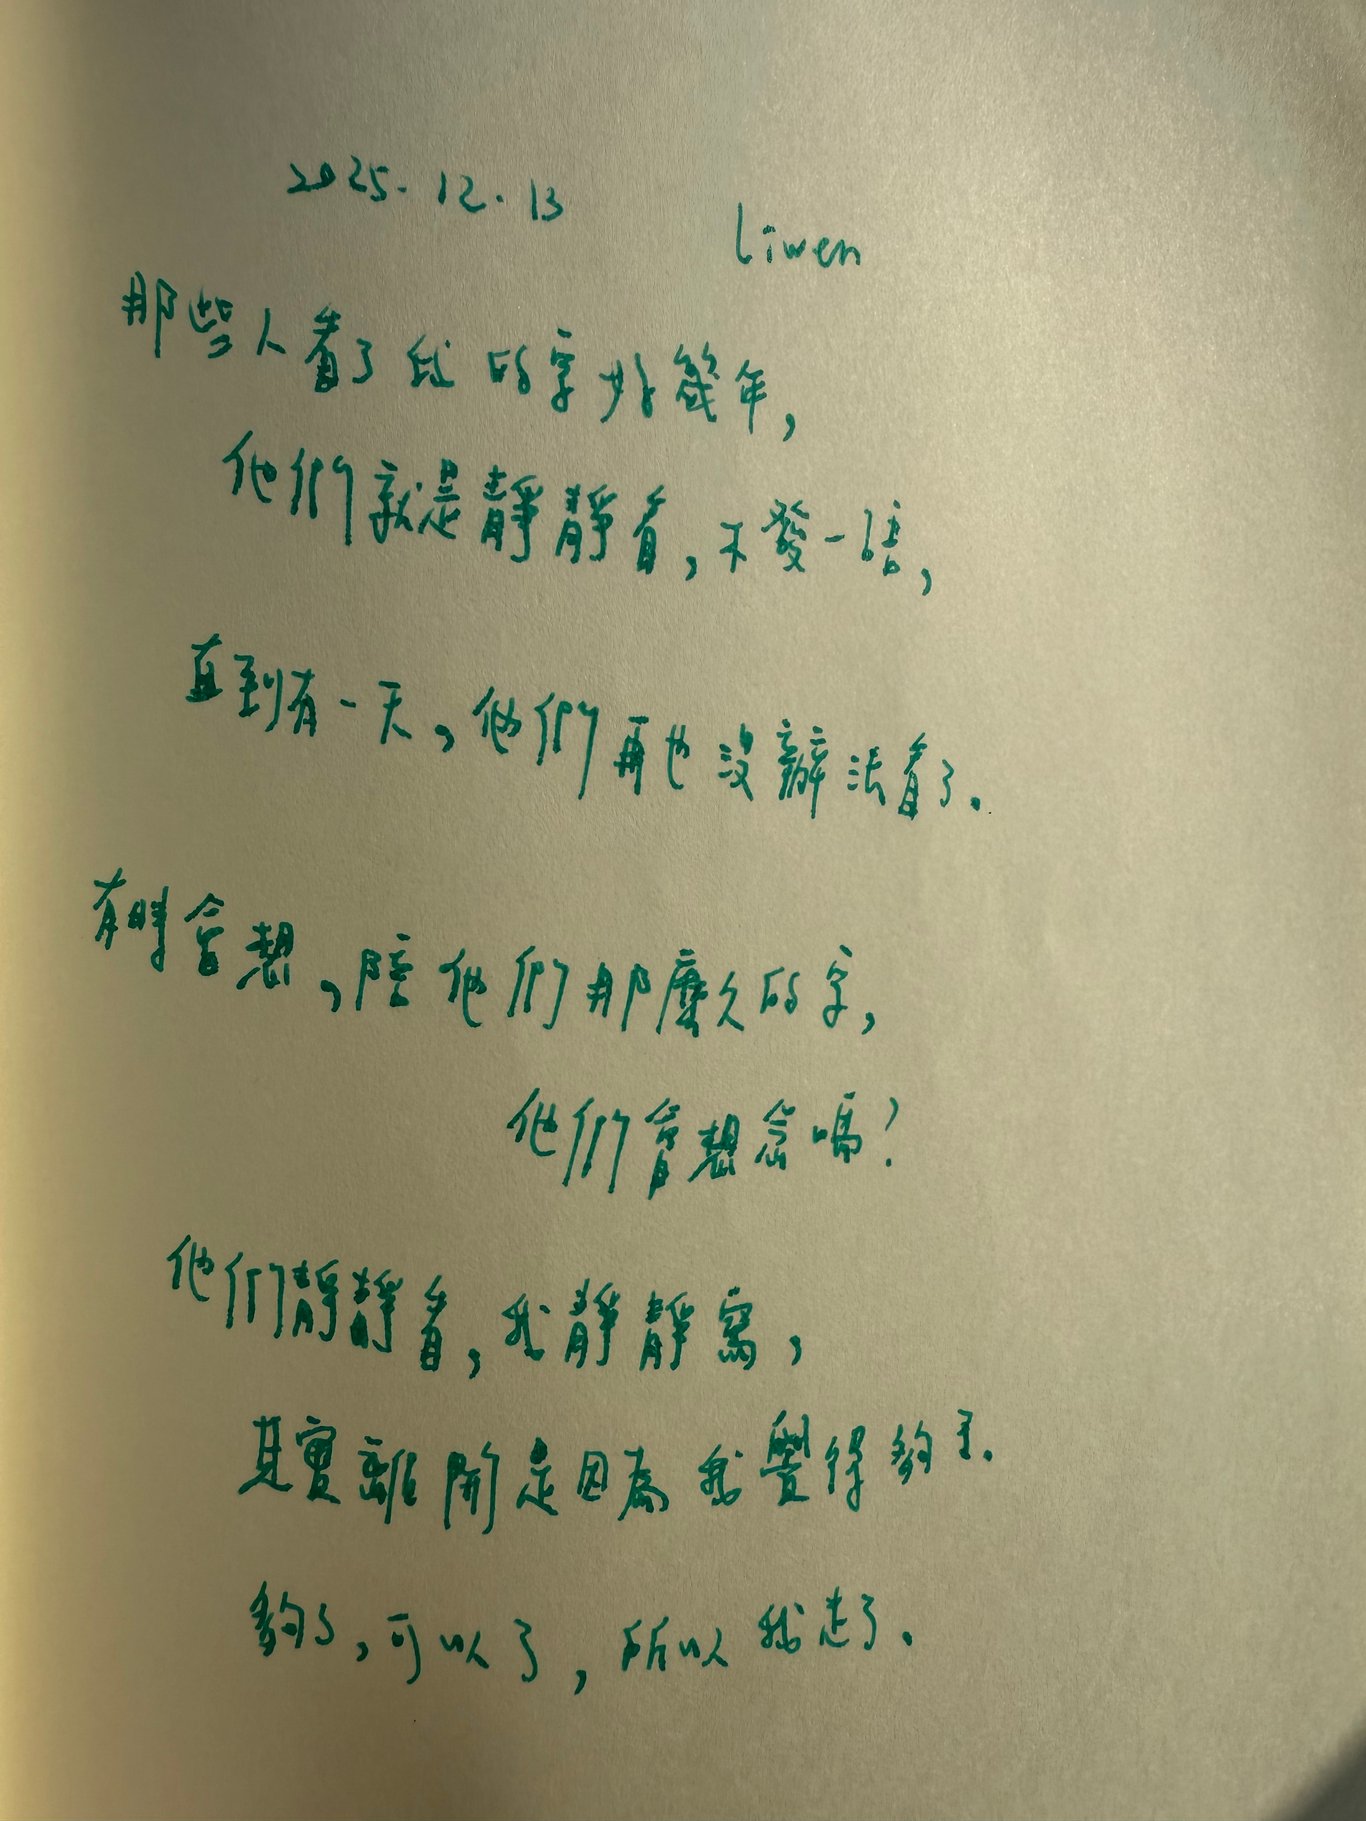 2025.12.13
Liwen
那些人看了我的字好幾年,
他們就是靜靜看,不發一語,
直到有一天,他們再也沒辦法看了.
有時會想,陪他們那麼久的字,
他們會想念嗎?
他們靜靜看,我靜靜寫,
其實離開是因為我覺得夠了.
夠了,可以了,所以我走了.